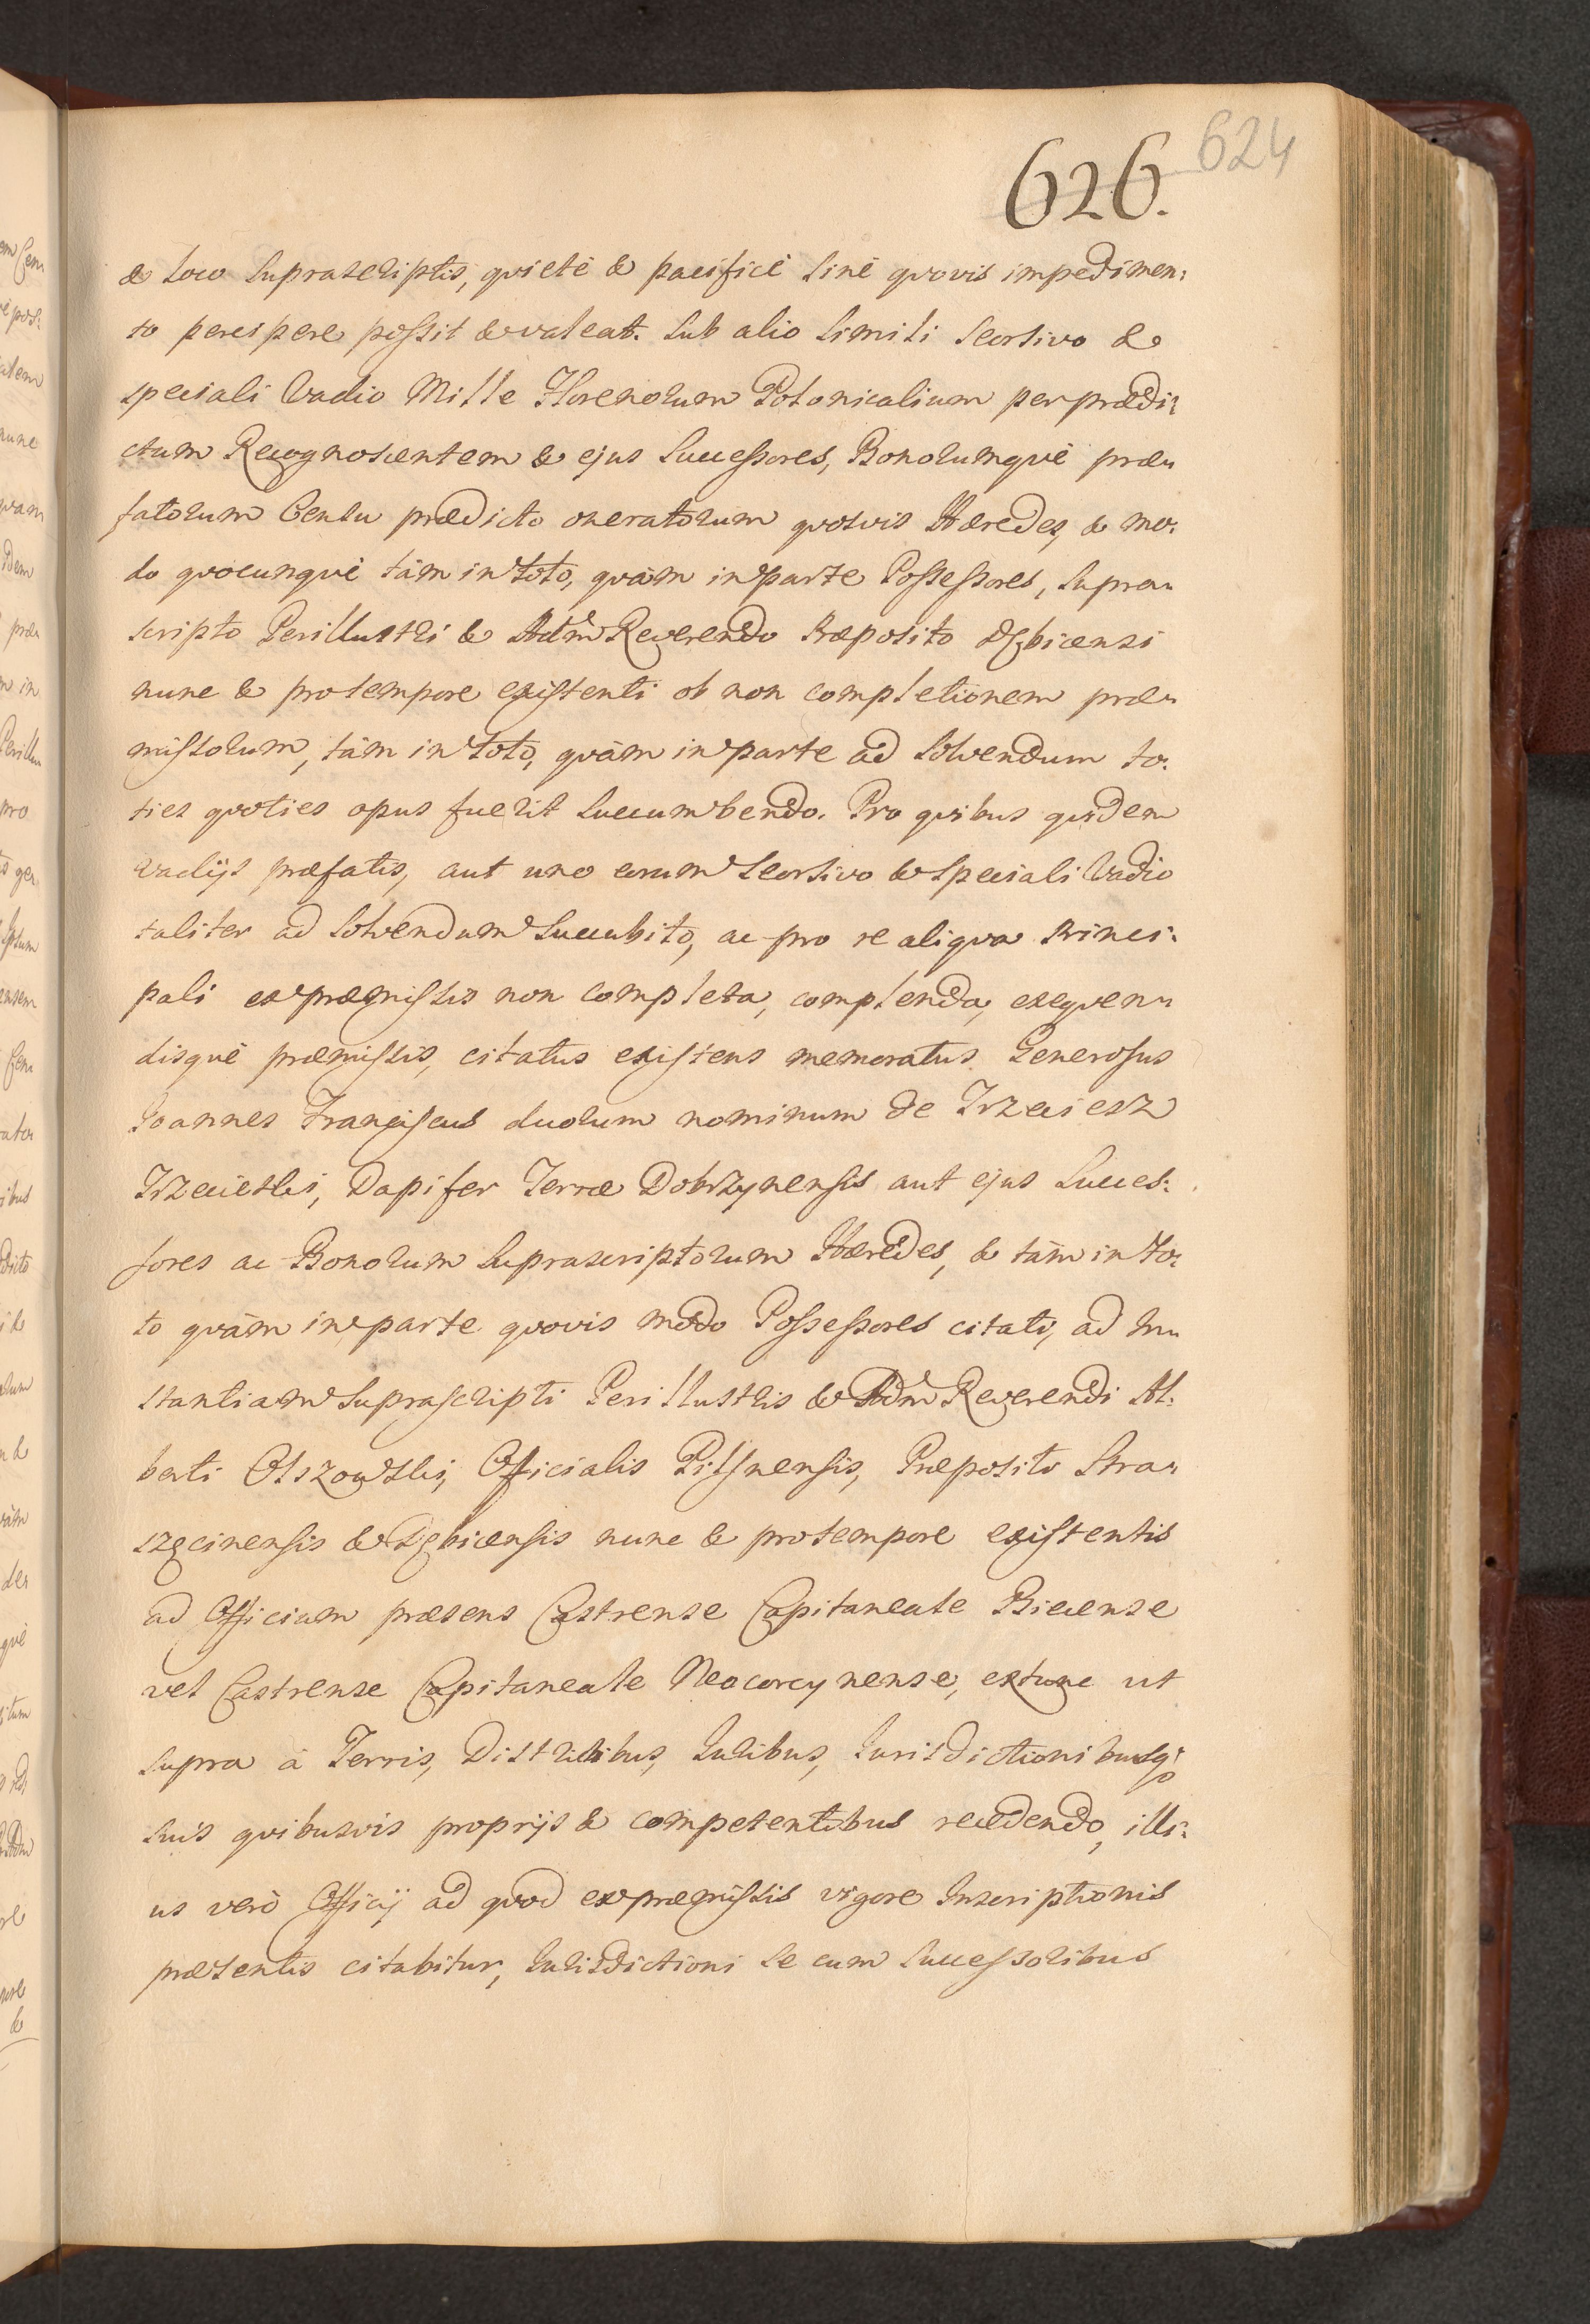 626. 624
& loco suprascriptis, quietè & pacificè sinè quovis impedimen:
to percipere possit & valeat. Sub alio simili seorsivo &
speciali Vadio Mille Florenorum Polonicalium per prædi:
ctum Recognoscentem & ejus Successores, Bonorumquè præ:
fatorum Censu prædicto oneratorum quosvis Hæredes, & mo:
do quocunquè tàm in toto, quàm in parte Possessores, supra:
scripto Perillustri & Adm̃ Reverendo Præposito Dębicensi
nunc & pro tempore existenti ob non completionem præ:
missorum, tàm in toto, quàm in parte ad solvendum to:
ties quoties opus fuerit succumbendo. Pro quibus quidem
Vadijs præfatis, aut uno eorum seorsivo & speciali Vadio
taliter ad solvendum succubito, ac pro re aliqua Princi:
pali ex præmissis non completa, complenda, exequen:
disquè præmissis, citatus existens memoratus Generosus
Joannes Franciscus duorum nominum de Trzeciesz
Trzecieski, Dapifer Terræ Dobrzynensis aut ejus Succes:
sores ac Bonorum suprascriptorum Hæredes, & tàm in to:
to quàm in parte quovis modo Possessores citati, ad In:
stantiam suprascripti Perillustris & Adm̃ Reverendi Al:
berti Olszowski, Officialis Pilsnensis, Præposito Stra:
szęcinensis & Dębicensis nunc & pro tempore existentis
ad Officium præsens Castrense Capitaneale Biecense
vel Castrense Capitaneale Neocorcynense, extunc ut
supra à Terris, Districtibus, Juribus, Jurisdictionibusq;
suis quibusvis proprijs & competentibus recedendo, illi:
us verò Officij ad quod ex præmissis vigore Inscriptionis
præsentis citabitur, Jurisdictioni se cum Successoribus